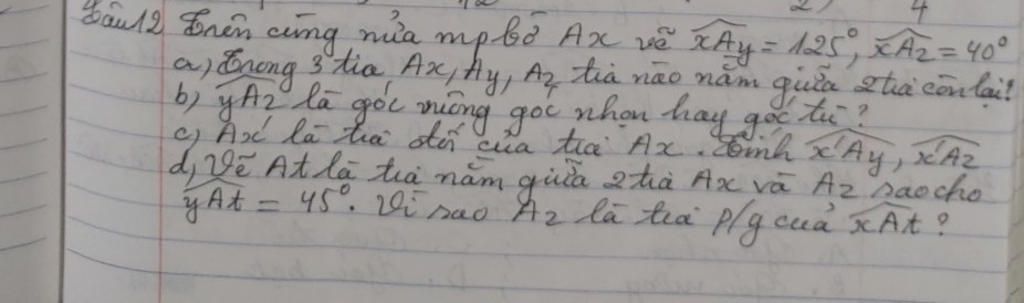 Câu 12 Trên cùng nửa mp bờ Ax vẽ xAy = 125°, xAz = 40°
a, Trong 3 tia Ax, Ay, Az tia nào nằm giữa 2 tia còn lại?
b, yAz là góc vuông góc nhọn hay góc tù?
c, Ax' là tia đối của tia Ax. Tính x'Ay, x'Az
d, Vẽ At là tia nằm giữa 2 tia Ax và Az sao cho
yAt = 45°. Vì sao Az là tia p/g của xAt?